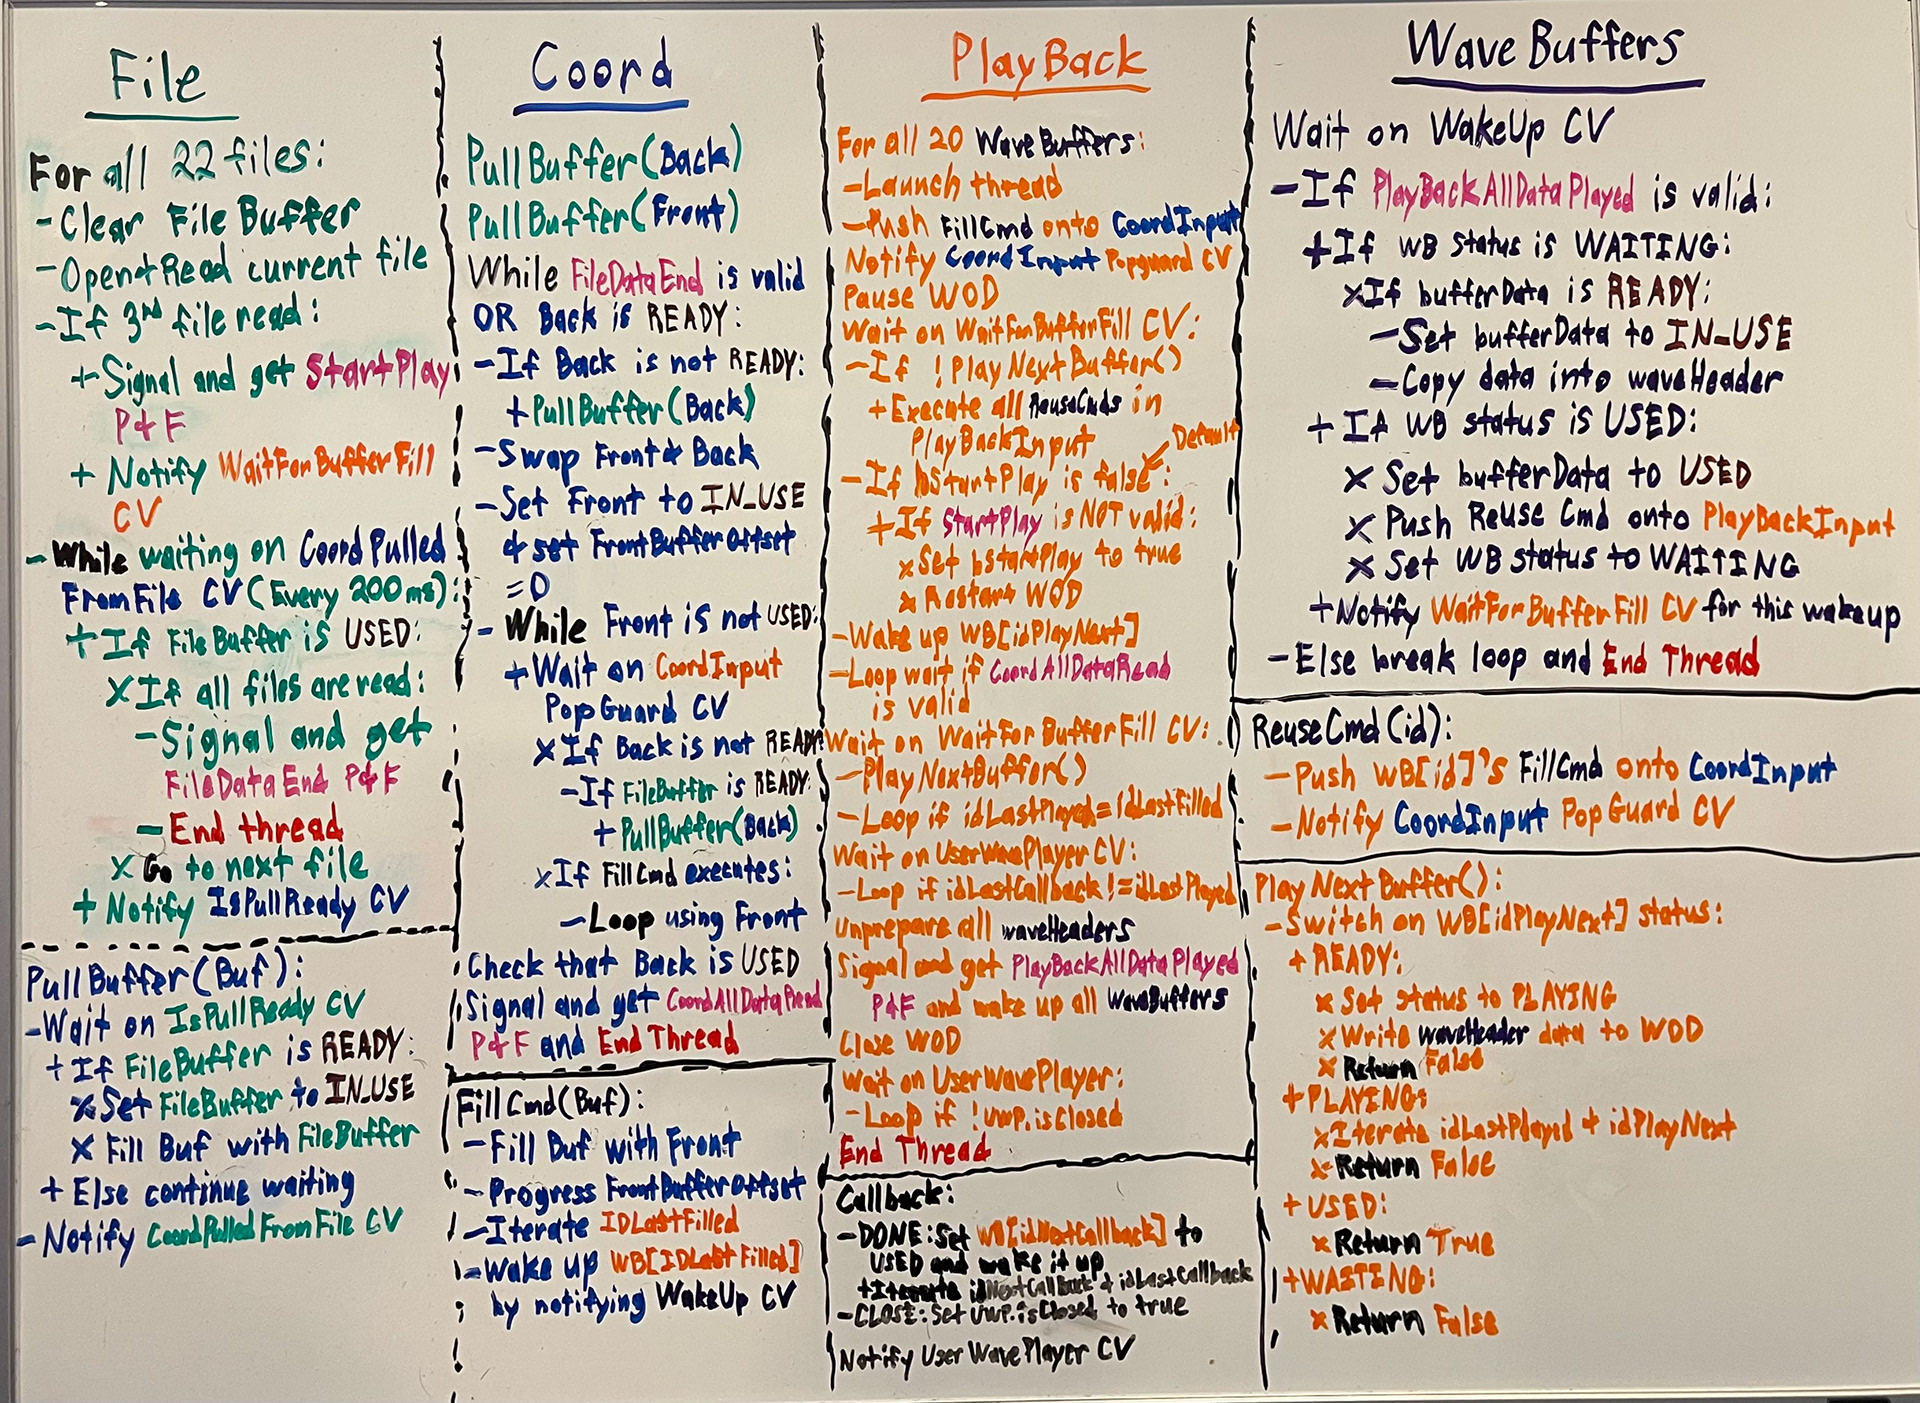 File
For all 22 files:
-Clear File Buffer
-Open+Read current file
-If 3rd file read:
+Signal and get StartPlay
P&F
+ Notify WaitForBufferFill
CV
- While waiting on CoordPulled
FromFile CV (Every 200ms):
+If FileBuffer is USED:
X If all files are read:
-Signal and get
FileDataEnd P&F
- End thread
X Go to next file
+ Notify IsPullReady CV
PullBuffer(Buf):
-Wait on IsPullReady CV
+ If FileBuffer is READY:
X Set FileBuffer to IN_USE
X Fill Buf with FileBuffer
+ Else continue waiting
- Notify CoordPulledFromFile CV
Coord
PullBuffer(Back)
PullBuffer(Front)
While FileDataEnd is valid
OR Back is READY:
-If Back is not READY:
+PullBuffer(Back)
-Swap Front & Back
-Set Front to IN_USE
& set FrontBufferOffset
=0
- While Front is not USED:
+Wait on CoordInput
PopGuard CV
X If Back is not READY:
-If FileBuffer is READY:
+ PullBuffer(Back)
X If FillCmd executes:
-Loop using Front
Check that Back is USED
Signal and get CoordAllDataRead
P&F and End Thread
FillCmd(Buf):
-Fill Buf with Front
-Progress FrontBufferOffset
-Iterate IDLastFilled
-Wake up WB[IDLastFilled]
by notifying WakeUp CV
PlayBack
For all 20 WaveBuffers:
-Launch thread
-Push FillCmd onto CoordInput
Notify CoordInput Popguard CV
Pause WOD
Wait on WaitForBufferFill CV:
-If !PlayNextBuffer()
+Execute all ReuseCmds in
PlayBackInput
Default
-If bStartPlay is false:
+If StartPlay is NOT valid:
X Set bStartPlay to true
X Restart WOD
-Wake up WB[idPlayNext]
-Loop wait if CoordAllDataRead
is valid
Wait on WaitForBufferFill CV:
-PlayNextBuffer()
-Loop if idLastPlayed != idLastFilled
Wait on UserWavePlayer CV:
-Loop if idLastCallback != idLastPlayed
Unprepare all waveHeaders
Signal and get PlayBackAllDataPlayed
P&F and wake up all WaveBuffers
Close WOD
Wait on UserWavePlayer:
-Loop if !uwp.isClosed
End Thread
Callback:
-DONE: Set WB[idNextCallback] to
USED and wake it up
+Iterate idNextCallback & idLastCallback
-CLOSE: Set uwp.isClosed to true
Notify UserWavePlayer CV
WaveBuffers
Wait on WakeUp CV
-If PlayBackAllDataPlayed is valid:
+If WB status is WAITING:
XIf bufferData is READY:
-Set bufferData to IN_USE
-Copy data into waveHeader
+ If WB status is USED:
X Set bufferData to USED
X Push Reuse Cmd onto PlayBackInput
X Set WB status to WAITING
+Notify WaitForBufferFill CV for this wakeup
-Else break loop and End Thread
ReuseCmd(id):
-Push WB[id]'s FillCmd onto CoordInput
-Notify CoordInput PopGuard CV
PlayNextBuffer():
-Switch on WB[idPlayNext] status:
+ READY:
X Set status to PLAYING
X Write waveHeader data to WOD
X Return False
+PLAYING:
XIterate idLastPlayed & idPlayNext
X Return False
+ USED:
X Return True
+WAITING:
X Return False